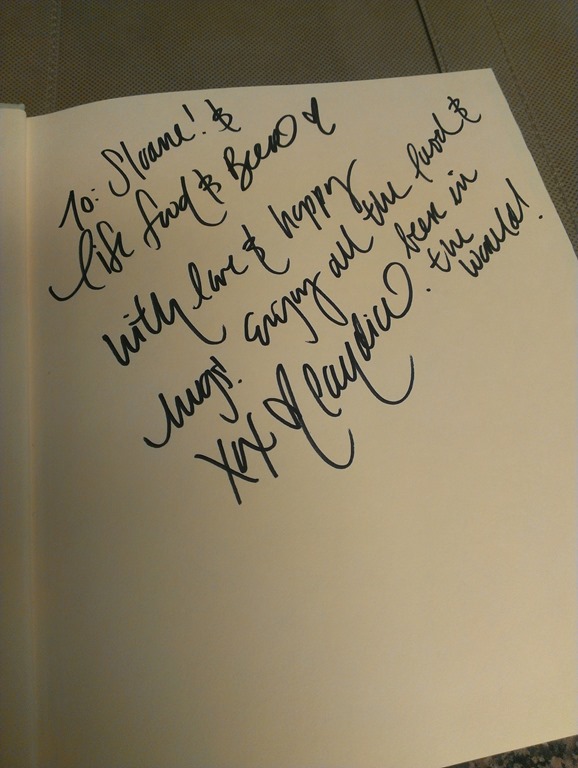 To: Sloane! &
Life Food & Beer ♥
with love & happy
hugs! Enjoy all the food &
beer in
the
world!
xox Candice.